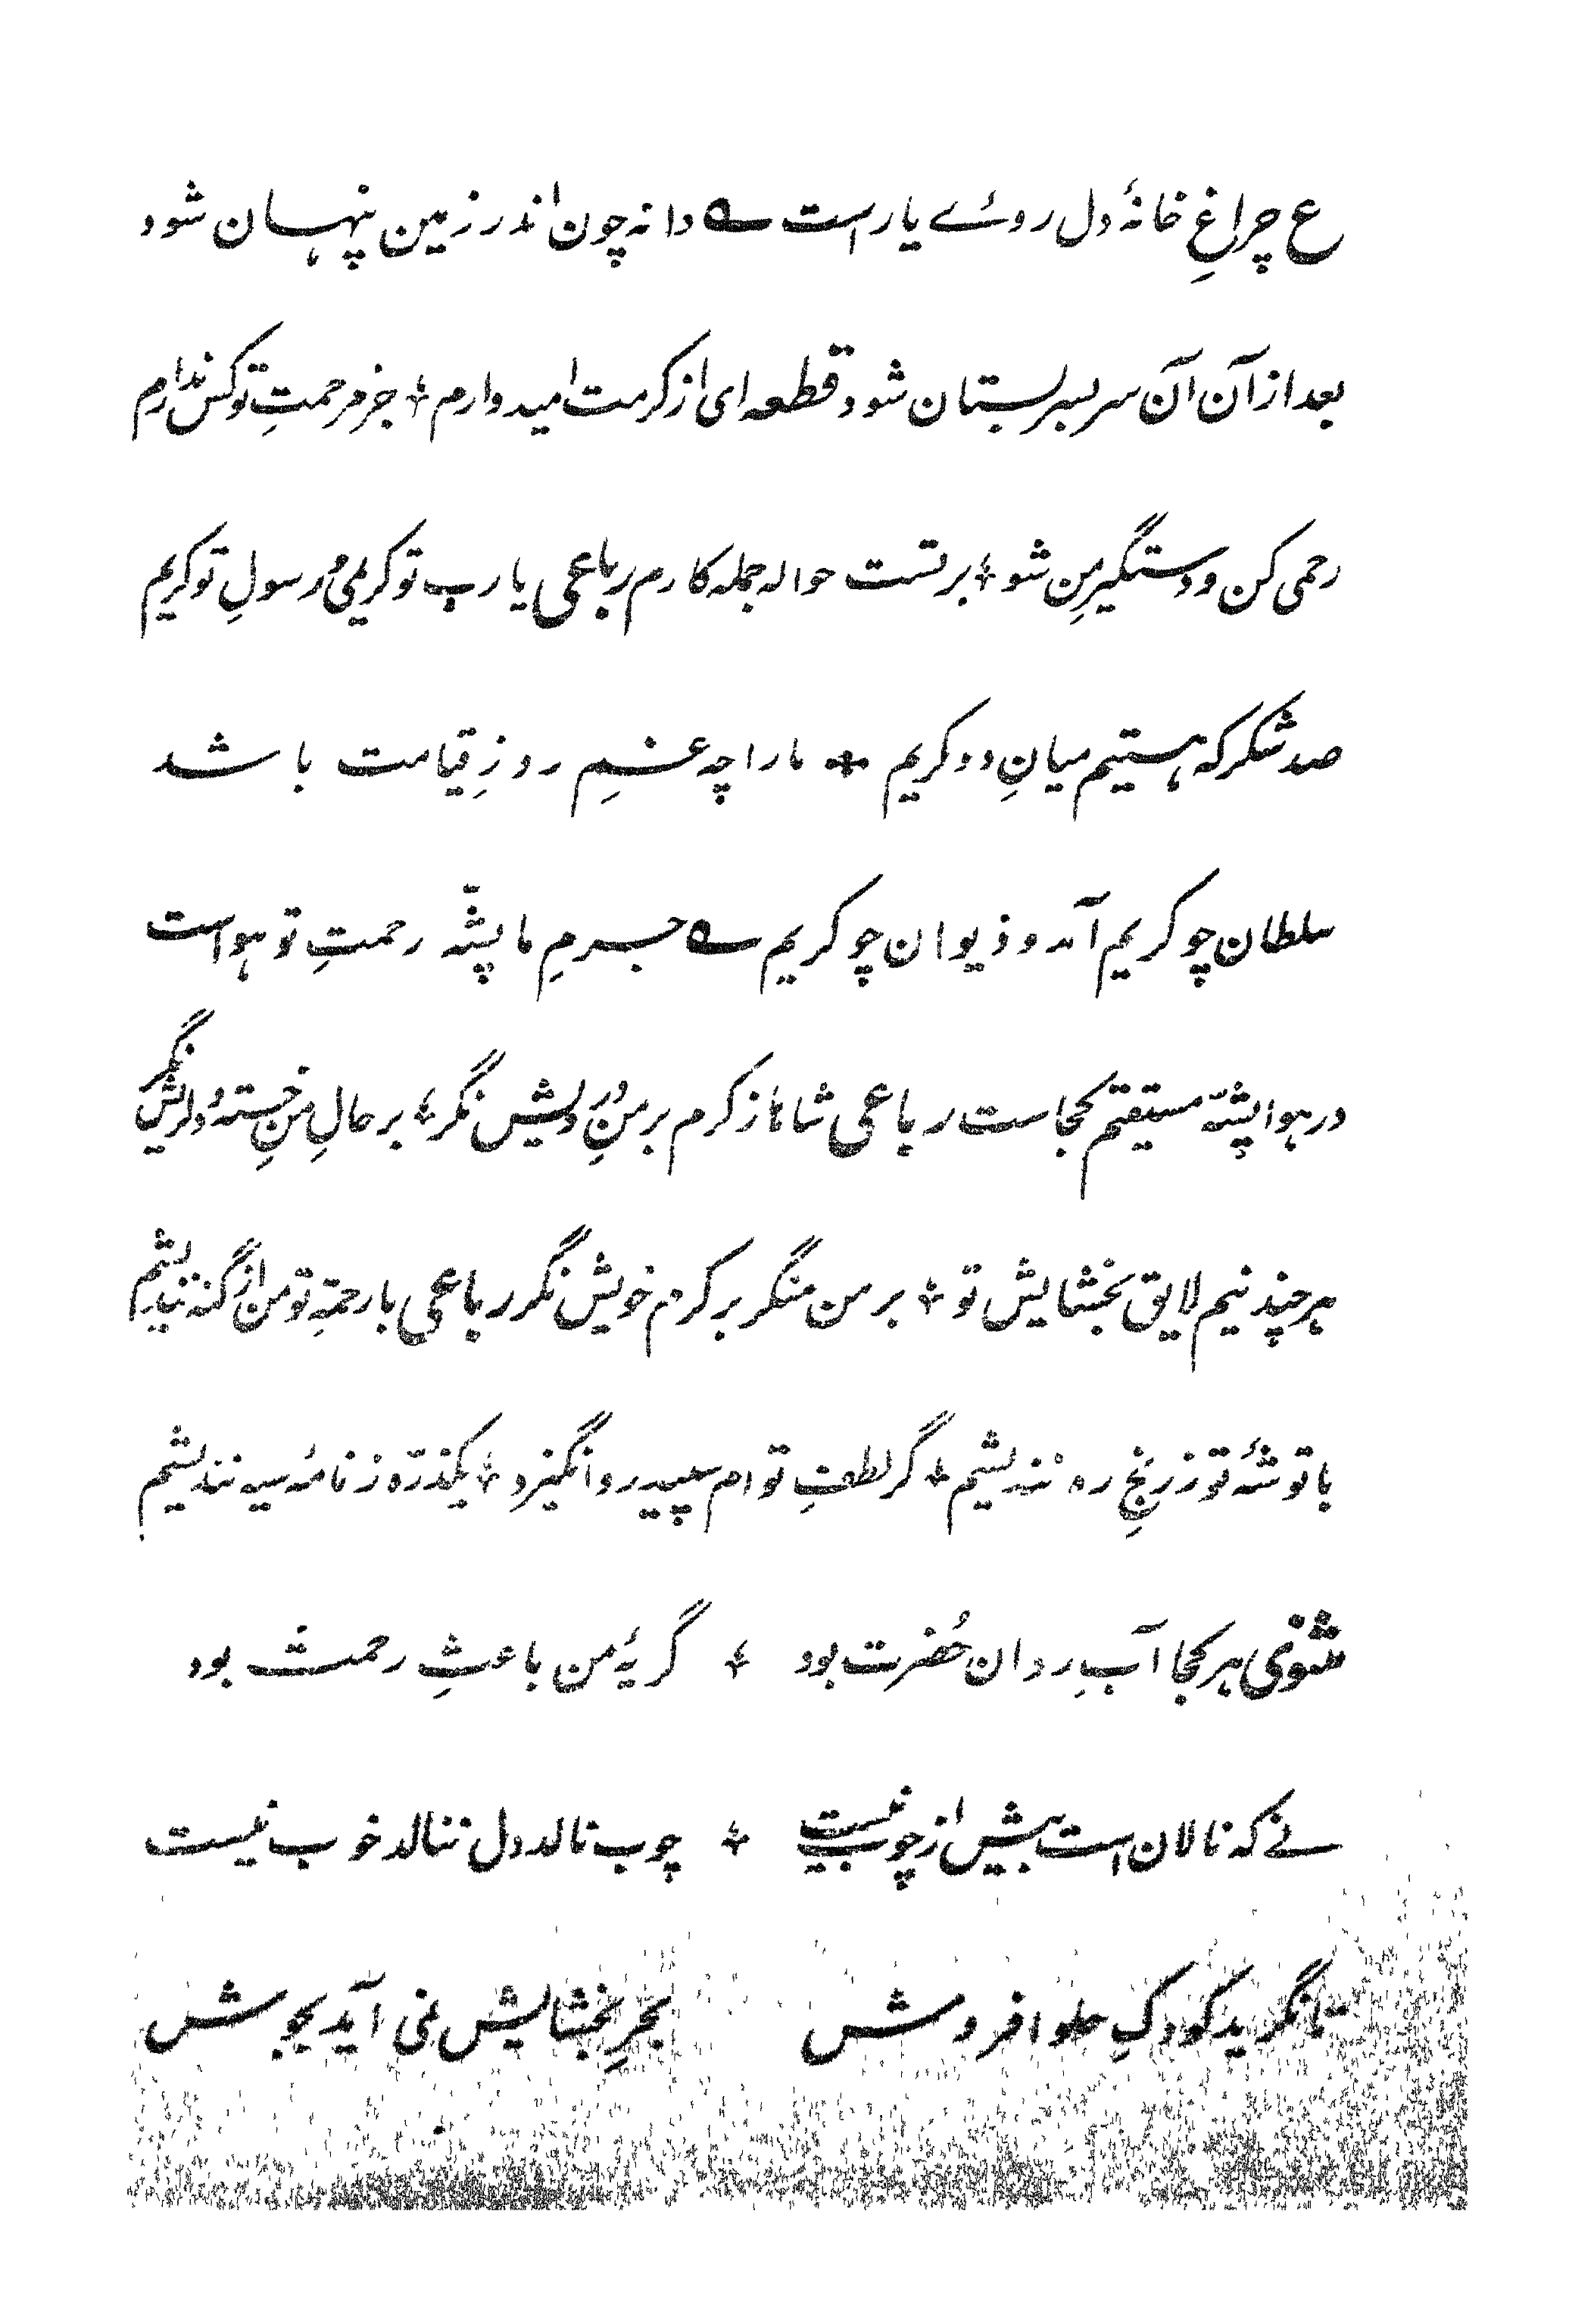 ع چراغِ خانۂ دل روۓ یار است ؎ دانہ چون اندر زمین پنہان شود
بعد ازآن آن سر بسر بستان شود قطعہ ای از کرمت امیدوارم ؞ جز مرحمتِ تو کس ندارم
رحمی کن و دستگیرِ من شو ؞ بر تست حوالہ جملہ کارم رباعی یا رب تو کریمی و رسولِ تو کریم
صد شکر کہ ہستیم میانِ دو کریم ؞ مارا چہ غمِ روزِ قیامت باشد
سلطان چو کریم آمد و دیوان چو کریم ؎ جرمِ ما پشّہ رحمتِ تو ہواست
در ہوا پشّہ مستقیم کجاست رباعی شاہا ز کرم بر منِ درویش نگر ؞ بر حالِ منِ خستہ و دلریش نگر
ہر چند نیم لایق بخشایش تو ؞ بر من منگر بر کرم خویش نگر رباعی با رحمتِ تو من از گنہ نندیشم
با توشۂ تو ز رنجِ رہ نندیشم ؞ گر لطفِ تو ام سپید رو انگیزد ؞ یکذرّہ ز نامۂ سیہ نندیشم
مثنوی ہر کجا آبِ روان خُضرت بود ؞ گریۂ من باعثِ رحمت بود
نے کہ نالان است بیش از چوب نیست ؞ چوب نالد دل ننالد خوب نیست
تا نگرید کودکِ حلوا فروش بحرِ بخشایش نمی آید بجوش